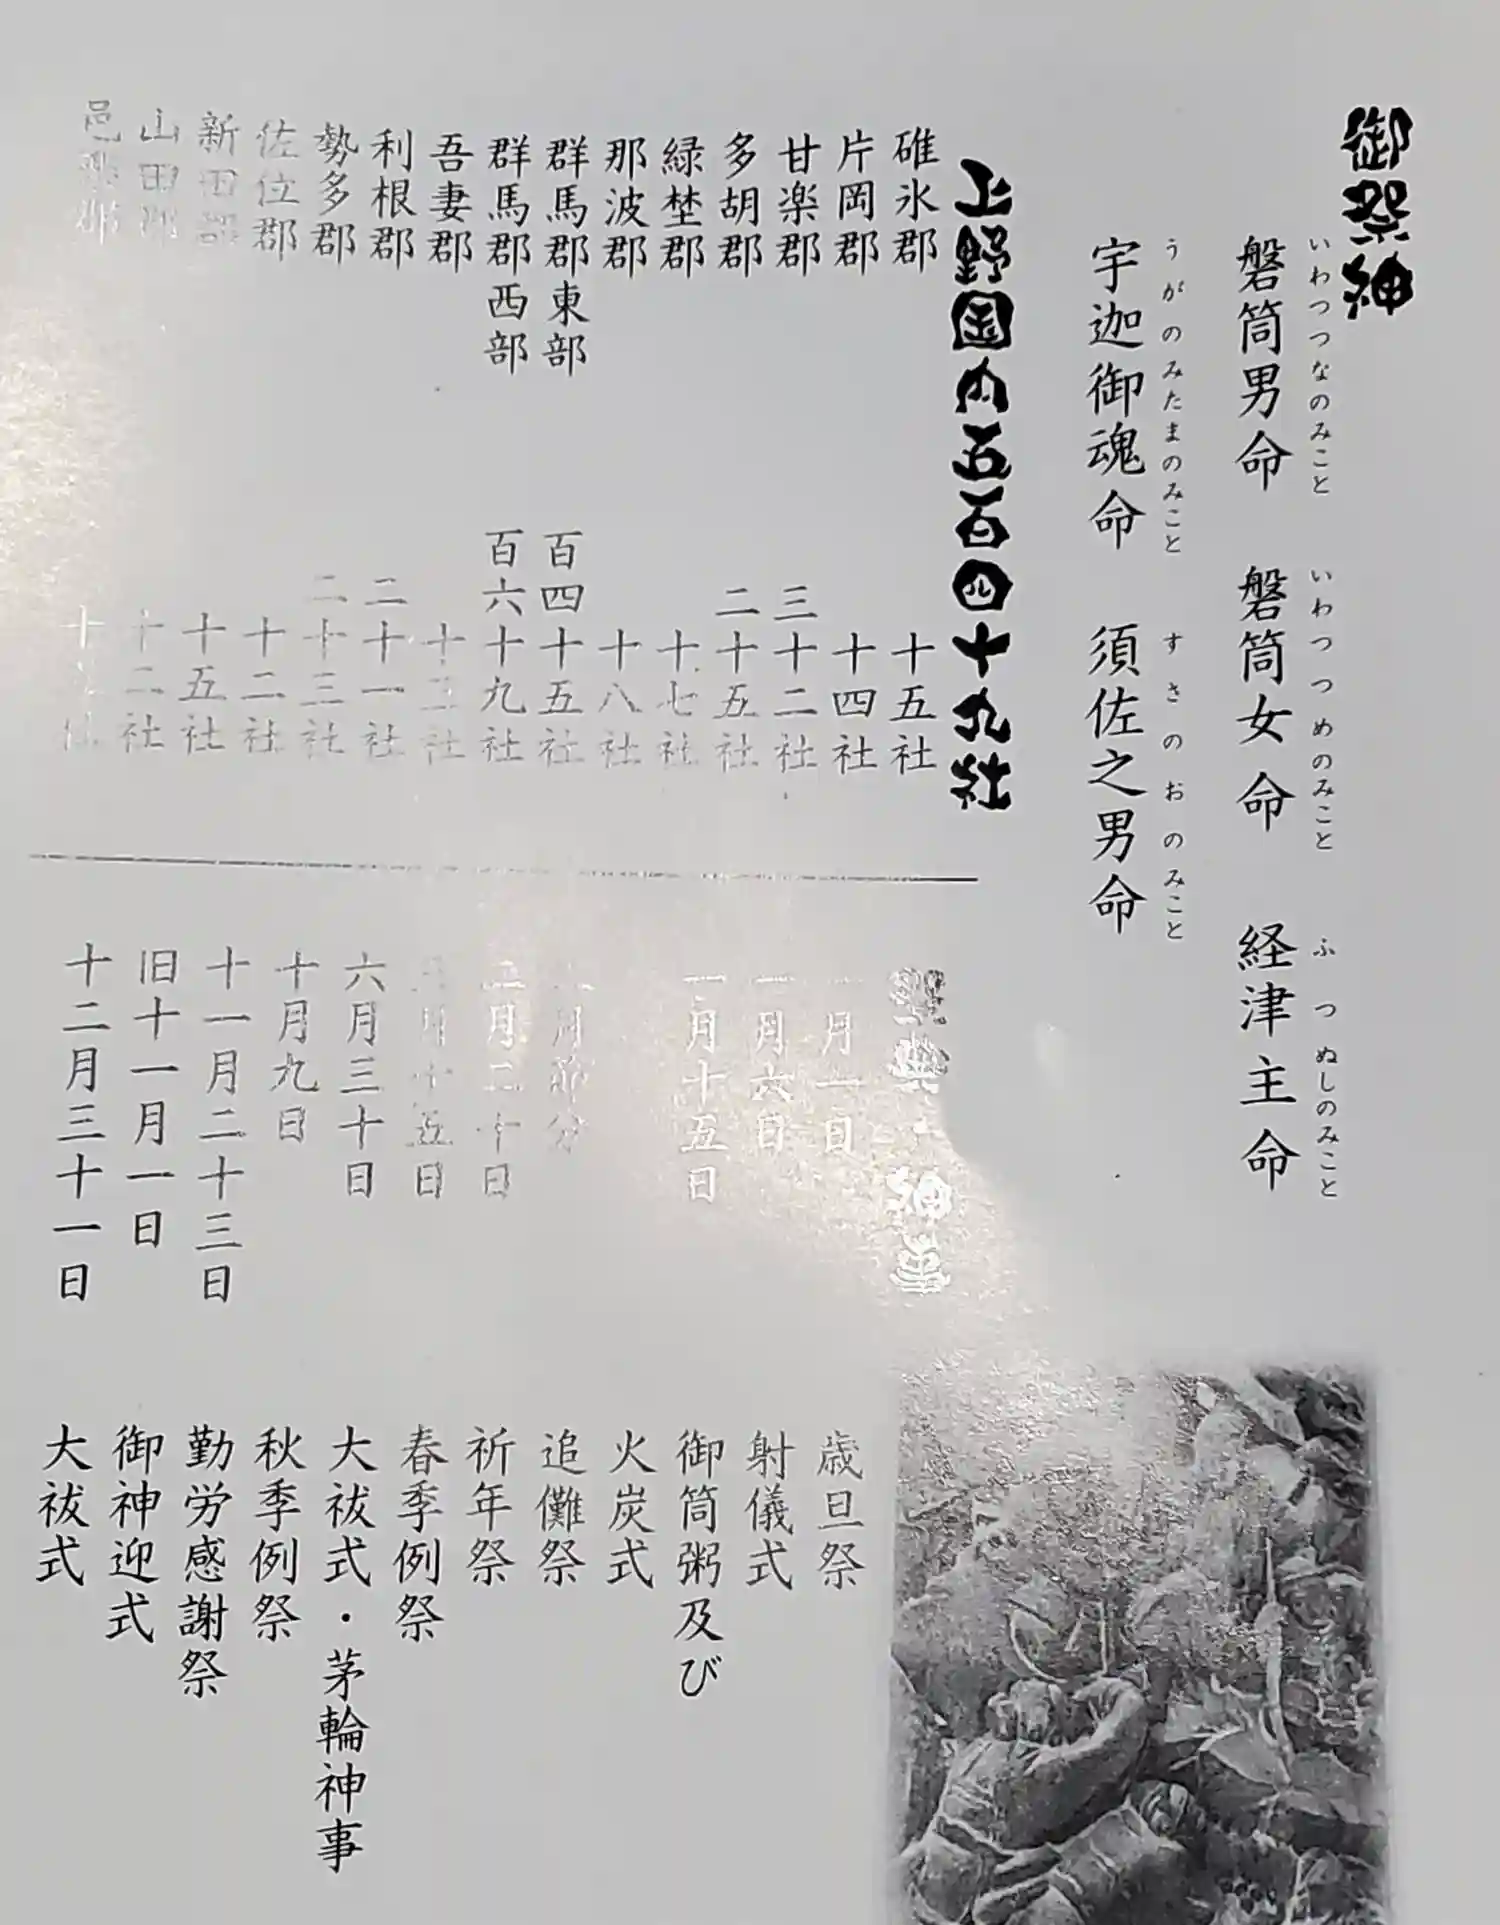 御祭神
いわつつなのみこと
磐筒男命
いわつつめのみこと
磐筒女命
ふつぬしのみこと
経津主命
うがのみたまのみこと
宇迦御魂命
すさのおのみこと
須佐之男命
上野国内五百四十九社
碓氷郡 十五社
片岡郡 十四社
甘楽郡 三十二社
多胡郡 二十五社
緑埜郡 十七社
那波郡 十八社
群馬郡東部 百四十五社
群馬郡西部 百六十九社
吾妻郡 十三社
利根郡 二十一社
勢多郡 二十三社
佐位郡 十二社
新田郡 十五社
山田郡 十二社
邑楽郡
祭典・神事
一月一日 歳旦祭
一月六日 射儀式
一月十五日 御筒粥及び
火炭式
月節分 追儺祭
月二十日 祈年祭
月十五日 春季例祭
六月三十日 大祓式・茅輪神事
十月九日 秋季例祭
十一月二十三日 勤労感謝祭
旧十一月一日 御神迎式
十二月三十一日 大祓式